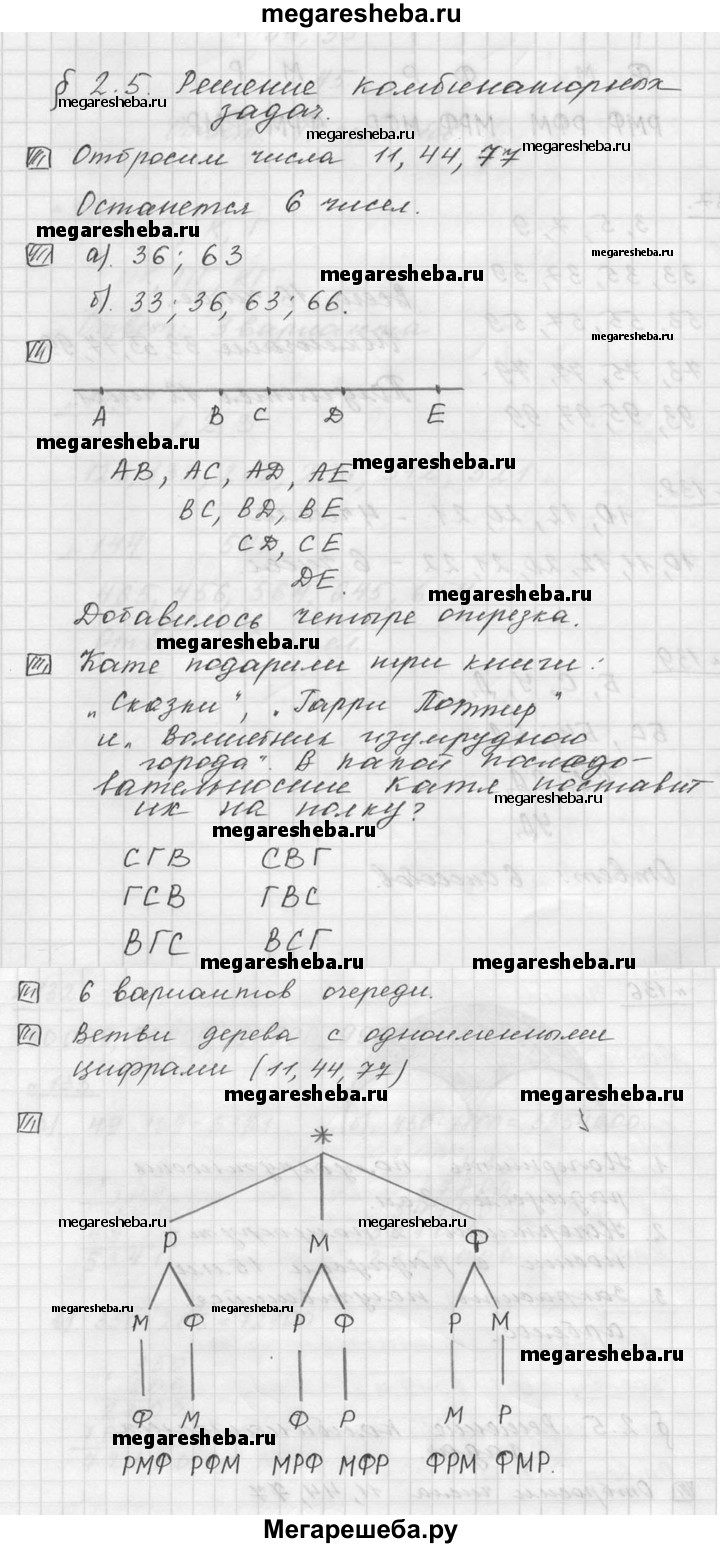 megaresheba.ru
§ 2.5. Решение комбинаторных
megaresheba.ru megaresheba.ru
задач.
megaresheba.ru
Отбросим числа 11, 44, 77
megaresheba.ru
Останется 6 чисел.
megaresheba.ru
а). 36; 63
megaresheba.ru
megaresheba.ru
б). 33; 36, 63; 66.
megaresheba.ru
A B C D E
megaresheba.ru
AB, AC, AD, AE
megaresheba.ru
BC, BD, BE
CD, CE
DE.
megaresheba.ru
Добавилось четыре отрезка.
megaresheba.ru
Кате подарили три книги:
„Сказки", „Гарри Поттер"
и „Волшебник изумрудного
города". В какой последо-
вательности Катя поставит
megaresheba.ru
их на полку?
megaresheba.ru
СГВ СВГ
ГСВ ГВС
ВГС ВСГ
megaresheba.ru megaresheba.ru
6 вариантов очереди.
Ветви дерева с одноименными
цифрами (11, 44, 77)
megaresheba.ru megaresheba.ru
*
megaresheba.ru megaresheba.ru
Р М Ф
megaresheba.ru megaresheba.ru
М Ф Р Ф Р М
megaresheba.ru
Ф М Ф Р М Р
megaresheba.ru
РМФ РФМ МРФ МФР ФРМ ФМР.
Мегарешеба.ру